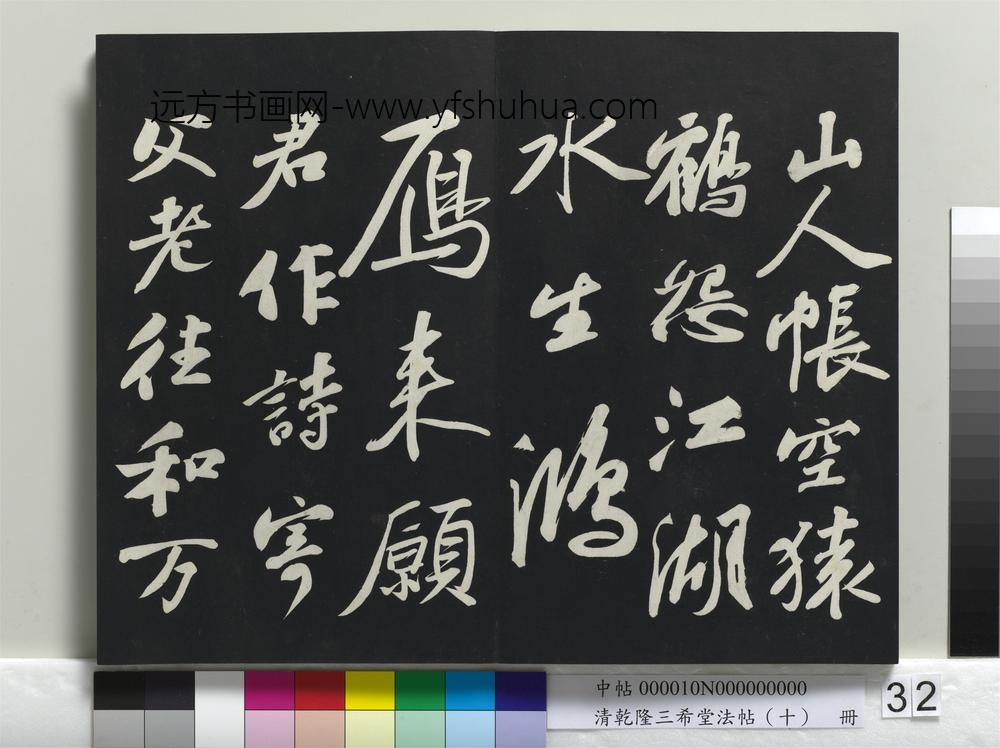 远方书画网-www.yfshuhua.com
山人帳空猿
鶴怨江湖
水生鴻
鴈来願
君作詩寄
父老往和万
中帖 000010N000000000
清乾隆三希堂法帖（十） 冊
32